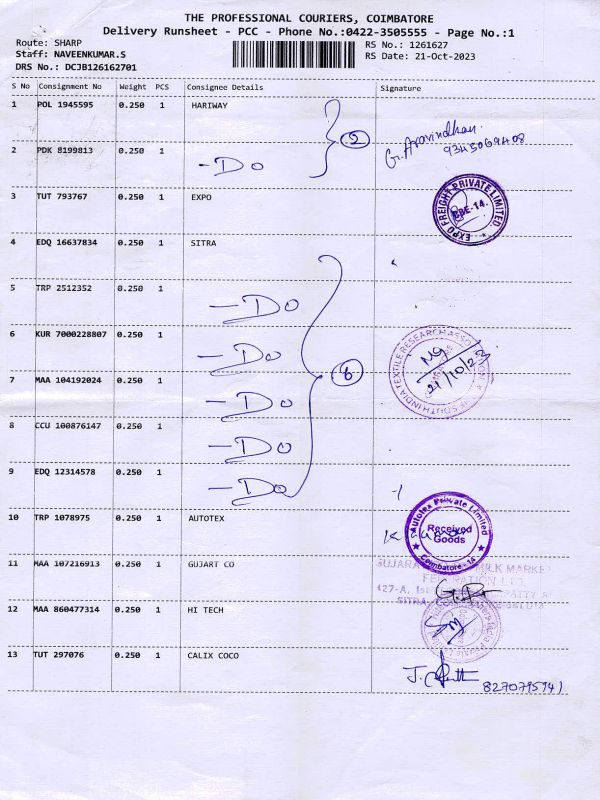 THE PROFESSIONAL COURIERS, COIMBATORE
Delivery Runsheet - PCC - Phone No.:0422-3505555 - Page No.:1
Route: SHARP
RS No.: 1261627
Staff: NAVEENKUMAR.S
RS Date: 21-Oct-2023
DRS No.: DCJB126162701
S No Consignment No Weight PCS Consignee Details Signature
1 POL 1945595 0.250 1 HARIWAY
2
G. Aravindhan.
2 PDK 8199813 0.250 1 -Do
3 TUT 793767 0.250 1 EXPO
EXPO FREIGHT PRIVATE LIMITED.
CBE-14.
4 EDQ 16637834 0.250 1 SITRA
5 TRP 2512352 0.250 1 -Do
6 KUR 7000228807 0.250 1 -Do
6
THE SOUTH INDIA TEXTILE RESEARCH ASSOCIATION
21/10/23
7 MAA 104192024 0.250 1 -Do
8 CCU 100876147 0.250 1 -Do
9 EDQ 12314578 0.250 1 -Do
10 TRP 1078975 0.250 1 AUTOTEX
Autotex Private Limited
Received
Goods
Coimbatore - 14
11 MAA 107216913 0.250 1 GUJART CO
MILK MARKET
12 MAA 860477314 0.250 1 HI TECH
13 TUT 297076 0.250 1 CALIX COCO